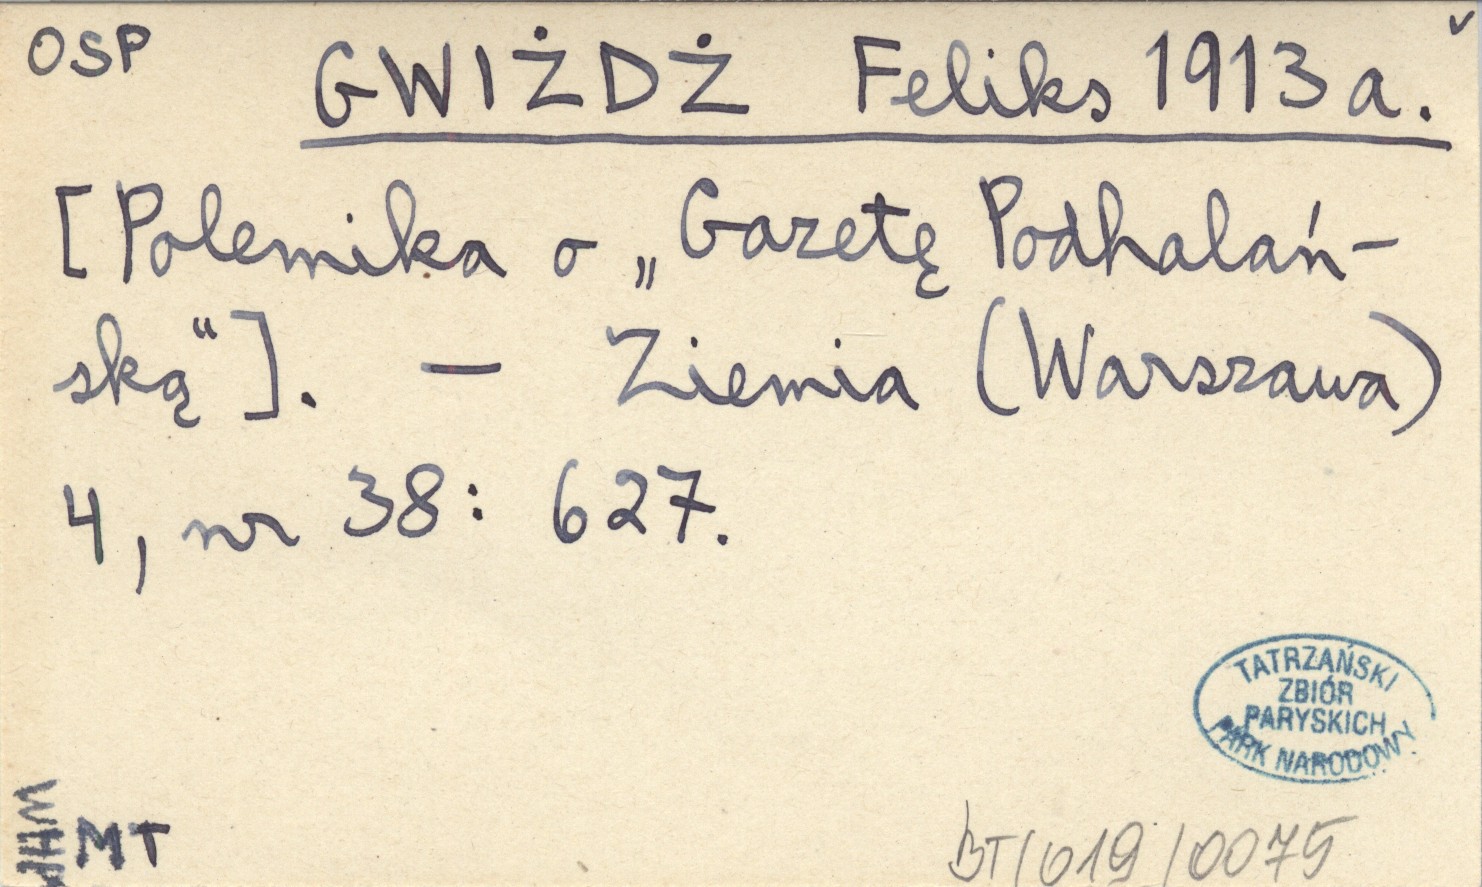 OSP
GWIŻDŻ Feliks 1913 a.
[Polemika o „Gazetę Podhalań-
ską"]. — Ziemia (Warszawa)
4, nr 38: 627.
TATRZAŃSKI
ZBIÓR
PARYSKICH
PARK NARODOWY
WHP
MT
BT/019/0075